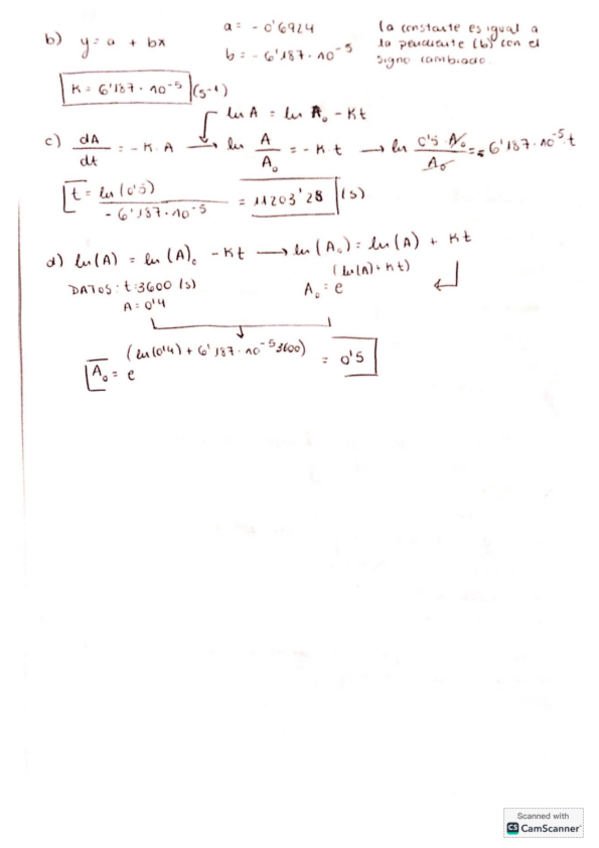 b) y = a + bx
a = - 0'6924
b = - 6'187 · 10⁻⁵
la constante es igual a
la pendiente (b) con el
signo cambiado.
K = 6'187 · 10⁻⁵ (s⁻¹)
ln A = ln A₀ - Kt
c) dA/dt = - K · A → ln A/A₀ = - K · t → ln 0'5 · A₀/A₀ = - 6'187 · 10⁻⁵ · t
t = ln (0'5)/- 6'187 · 10⁻⁵ = 11203'28 (s)
d) ln(A) = ln(A)₀ - Kt → ln(A₀) = ln(A) + Kt
DATOS: t = 3600 (s)
A = 0'4
A₀ = e^(ln(A) + Kt)
A₀ = e^(ln(0'4) + 6'187 · 10⁻⁵ · 3600) = 0'5
Scanned with
CS CamScanner